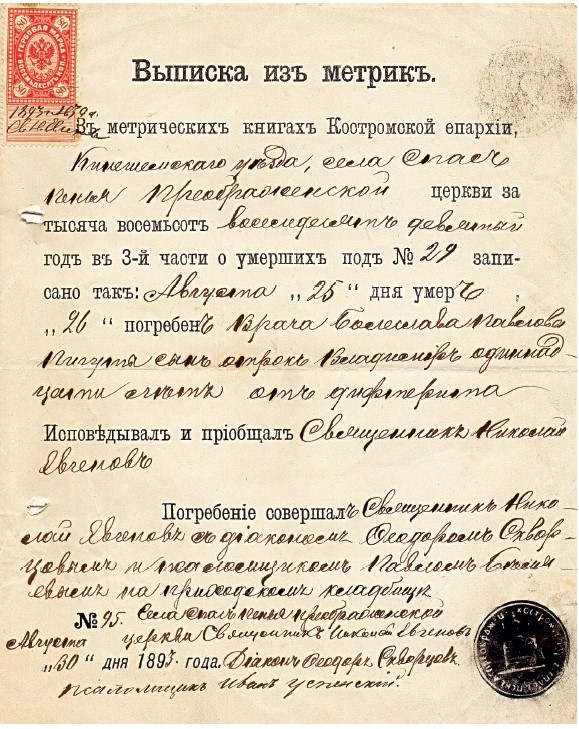 ГЕРБОВАЯ МАРКА
80 80
80 80
ВОСЕМЬДЕСЯТЪ КОП.
Выписка изъ метрикъ.
Въ метрическихъ книгахъ Костромской епархіи,
Кинешемскаго уѣзда, села Спасъ
Преображенской церкви за
тысяча восемьсот восемьдесятъ девятый
годъ въ 3-й части о умершихъ подъ № 29 запи-
сано такъ: Августа „25“ дня умеръ,
„26“ погребенъ Врача Болеслава Павлова
Пигута сынъ отрокъ Владиміръ одиннад-
цати лѣтъ отъ дифтерита
Исповѣдывалъ и пріобщалъ Священникъ Николай
Явгеновъ
Погребеніе совершалъ Священникъ Нико-
лай Явгеновъ съ діакономъ Ѳеодоромъ Сквор-
цовымъ и псаломщикомъ Павломъ
на приходскомъ кладбищѣ
№ 95. Села Спасъ Преображенской
церкви Священникъ Николай Явгеновъ
Августа
„30“ дня 1893 года. Діаконъ Ѳеодоръ Скворцовъ
Псаломщикъ Иванъ Успенскій.